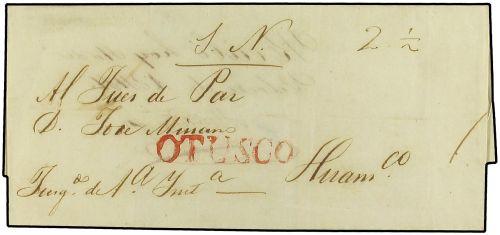 S. N.  2 ½
Al Jues de Paz
D. Jose Minano
OTUSCO
Juzg.º de 1.ª Inst.ª  Huam.co